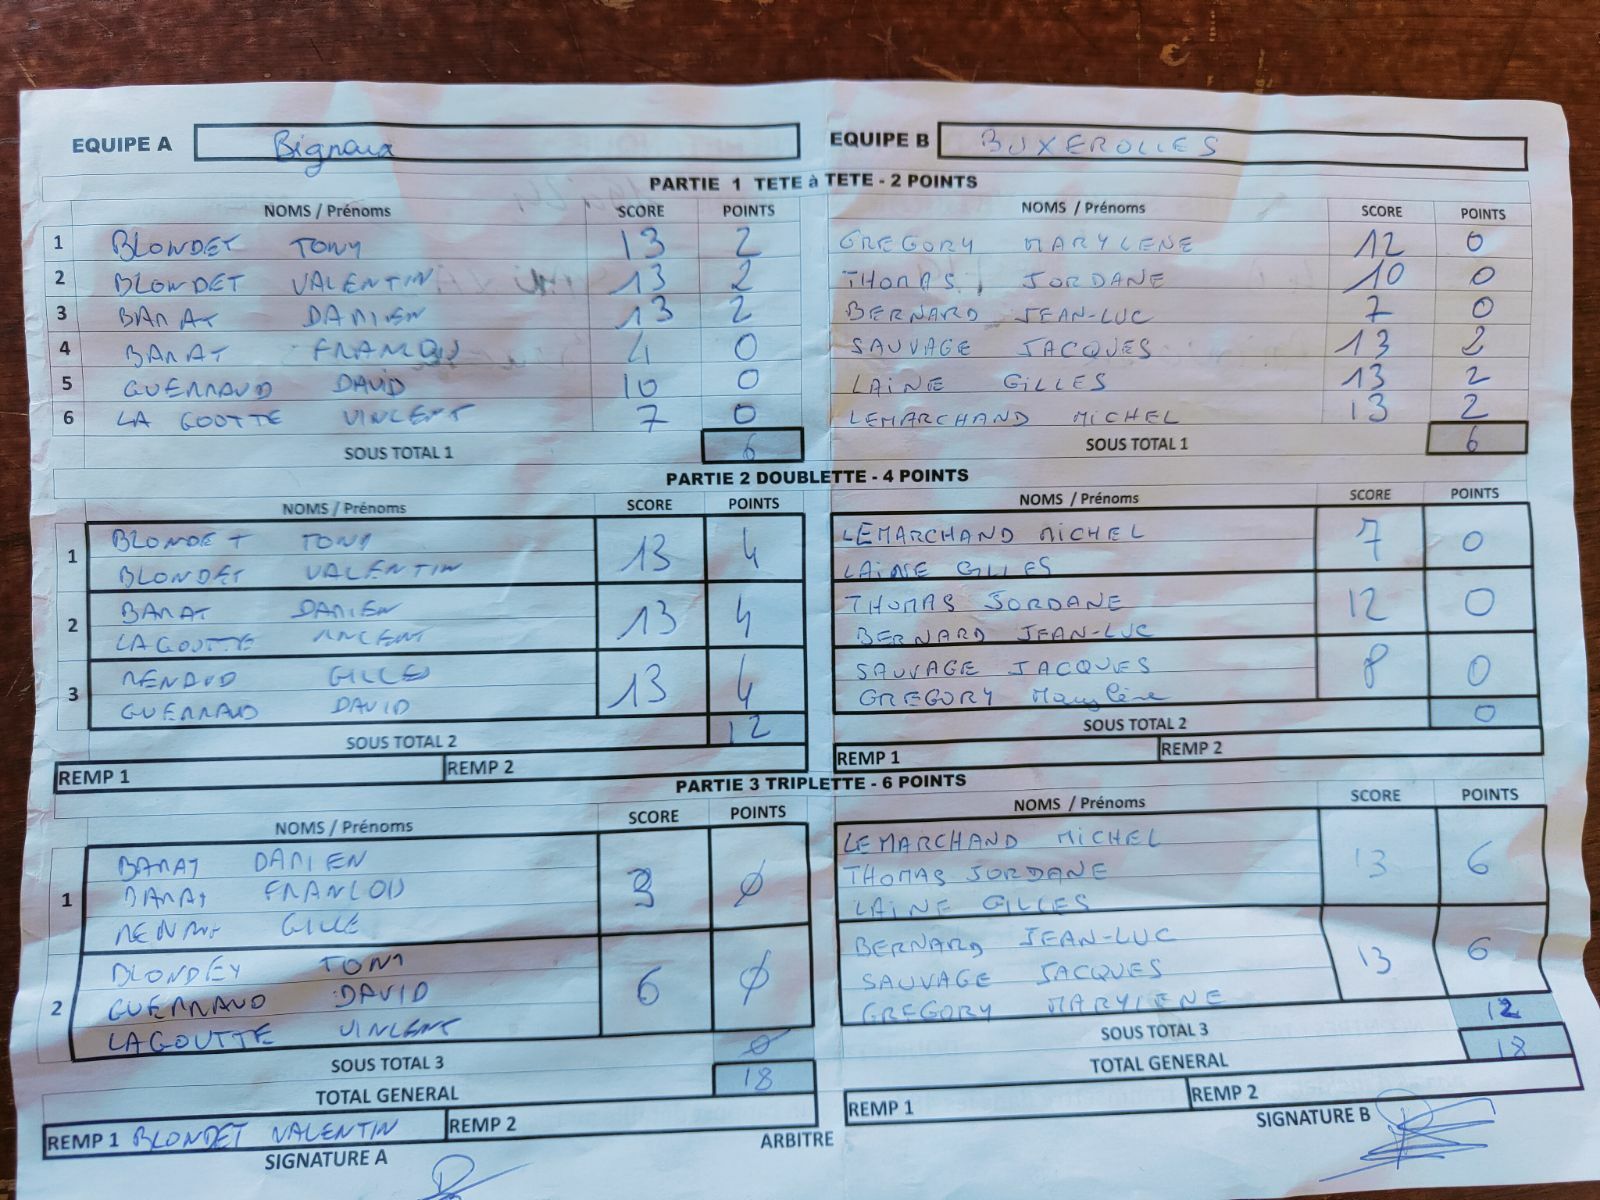 EQUIPE A Bignoux EQUIPE B BUXEROLLES
PARTIE 1 TETE à TETE - 2 POINTS
NOMS / Prénoms SCORE POINTS NOMS / Prénoms SCORE POINTS
1 BLONDET TONY 13 2 GREGORY MARYLENE 12 0
2 BLONDET VALENTIN 13 2 THOMAS JORDANE 10 0
3 BARAT DAMIEN 13 2 BERNARD JEAN-LUC 7 0
4 BARAT FRANCOIS 4 0 SAUVAGE JACQUES 13 2
5 GUERRAUD DAVID 10 0 LAINE GILLES 13 2
6 LA GOUTTE VINCENT 7 0 LEMARCHAND MICHEL 13 2
SOUS TOTAL 1 6 SOUS TOTAL 1 6
PARTIE 2 DOUBLETTE - 4 POINTS
NOMS / Prénoms SCORE POINTS NOMS / Prénoms SCORE POINTS
1 BLONDET TONY 13 4 LEMARCHAND MICHEL 7 0
BLONDET VALENTIN LAINE GILLES
2 BARAT DAMIEN 13 4 THOMAS JORDANE 12 0
LAGOUTTE VINCENT BERNARD JEAN-LUC
3 RENAUD GILLES 13 4 SAUVAGE JACQUES 8 0
GUERRAUD DAVID GREGORY Marylène
SOUS TOTAL 2 12 SOUS TOTAL 2 0
REMP 1 REMP 2 REMP 1 REMP 2
PARTIE 3 TRIPLETTE - 6 POINTS
NOMS / Prénoms SCORE POINTS NOMS / Prénoms SCORE POINTS
1 BARAT DAMIEN 3 0 LEMARCHAND MICHEL 13 6
BARAT FRANCOIS THOMAS JORDANE
GILLE LAINE GILLES
2 BLONDEY TONY 6 0 BERNARD JEAN-LUC 13 6
GUERRAUD DAVID SAUVAGE JACQUES
LAGOUTTE VINCENT GREGORY MARYLENE
SOUS TOTAL 3 0 SOUS TOTAL 3 12
TOTAL GENERAL 18 TOTAL GENERAL 18
REMP 1 BLONDET VALENTIN REMP 2 REMP 1 REMP 2
SIGNATURE A ARBITRE SIGNATURE B